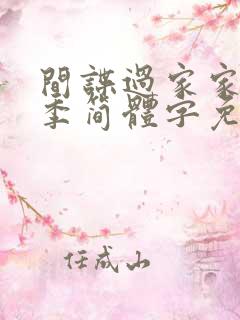 間諜過家家
季简體字免
任成山